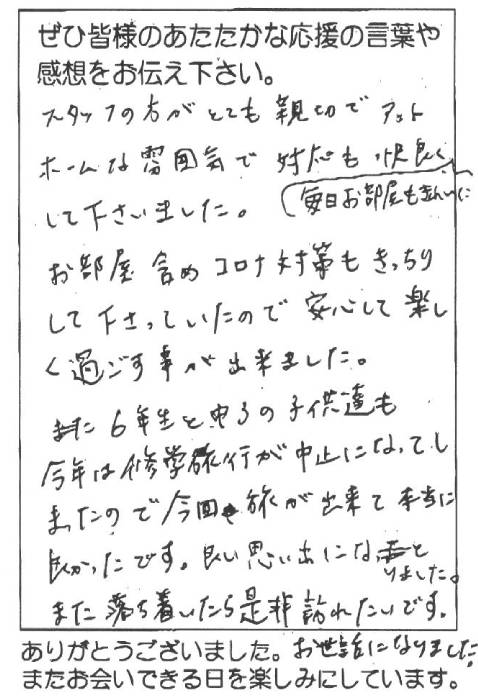 ぜひ皆様のあたたかな応援の言葉や
感想をお伝え下さい。
スタッフの方がとても親切でアット
ホームな雰囲気で対応も快良く
(毎日お部屋もきれいに
して下さいました。
お部屋含めコロナ対策もきっちり
して下さっていたので安心して楽し
く過ごす事が出来ました。
また6年生と中3の子供達も
今年は修学旅行が中止になってし
まったので今回旅が出来て本当に
良かったです。良い思い出にな
りました。
また落ち着いたら是非訪れたいです。
ありがとうございました。お世話になりました。
またお会いできる日を楽しみにしています。